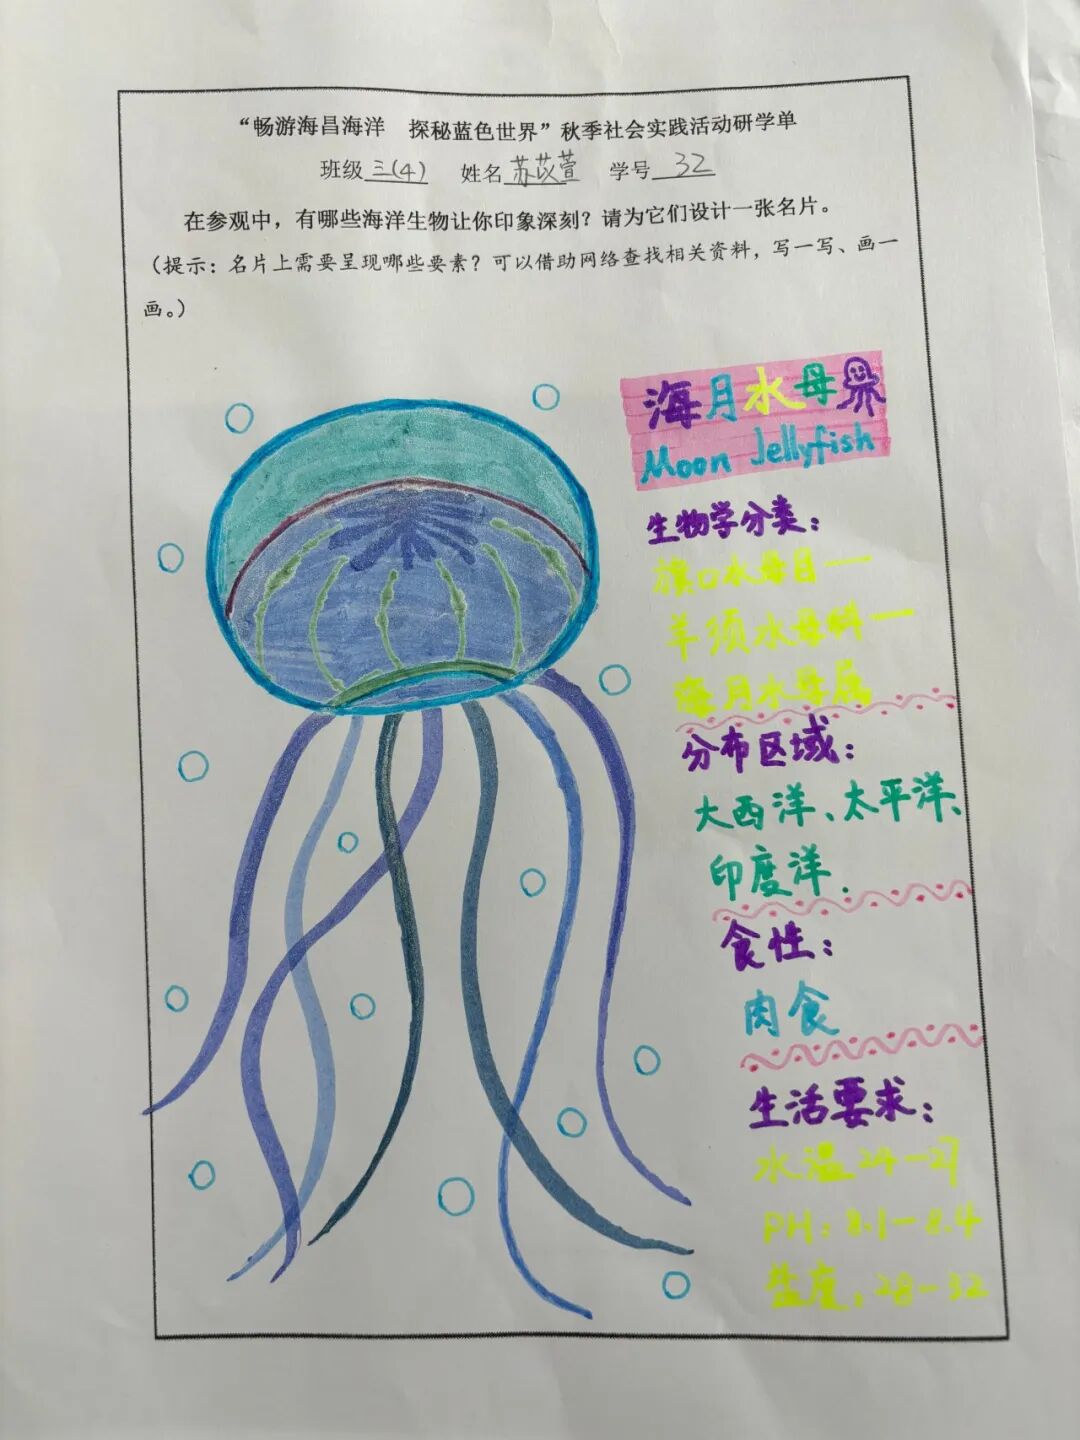 “畅游海昌海洋 探秘蓝色世界”秋季社会实践活动研学单
班级三(4) 姓名苏苡萱 学号32
在参观中，有哪些海洋生物让你印象深刻？请为它们设计一张名片。
（提示：名片上需要呈现哪些要素？可以借助网络查找相关资料，写一写、画一
画。）
海月水母
Moon Jellyfish
生物学分类：
旗口水母目一
羊须水母科一
海月水母属
分布区域：
大西洋、太平洋、
印度洋.
食性：
肉食
生活要求：
水温24-27
PH：8.1-8.4
盐度：28-32